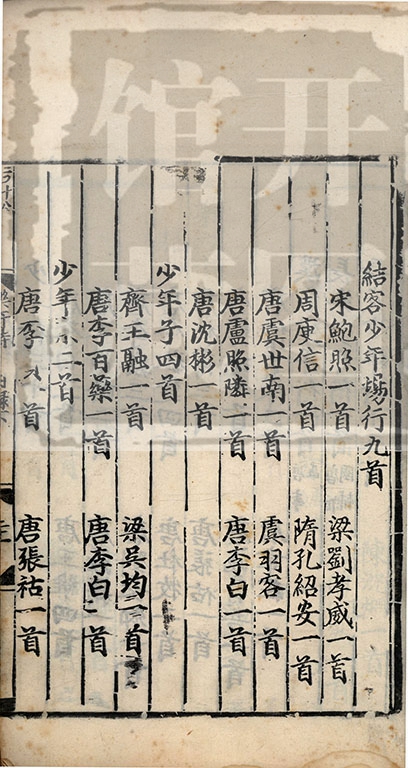 結客少年場行九首
宋鮑照一首　梁劉孝威一首
周庾信一首　隋孔紹安一首
唐虞世南一首　虞羽客一首
唐盧照隣一首　唐李白一首
唐沈彬一首
少年子四首
齊王融一首　梁吳均一首
唐李百藥一首　唐李白一首
少年二首
唐李首　唐張祜一首
开
馆